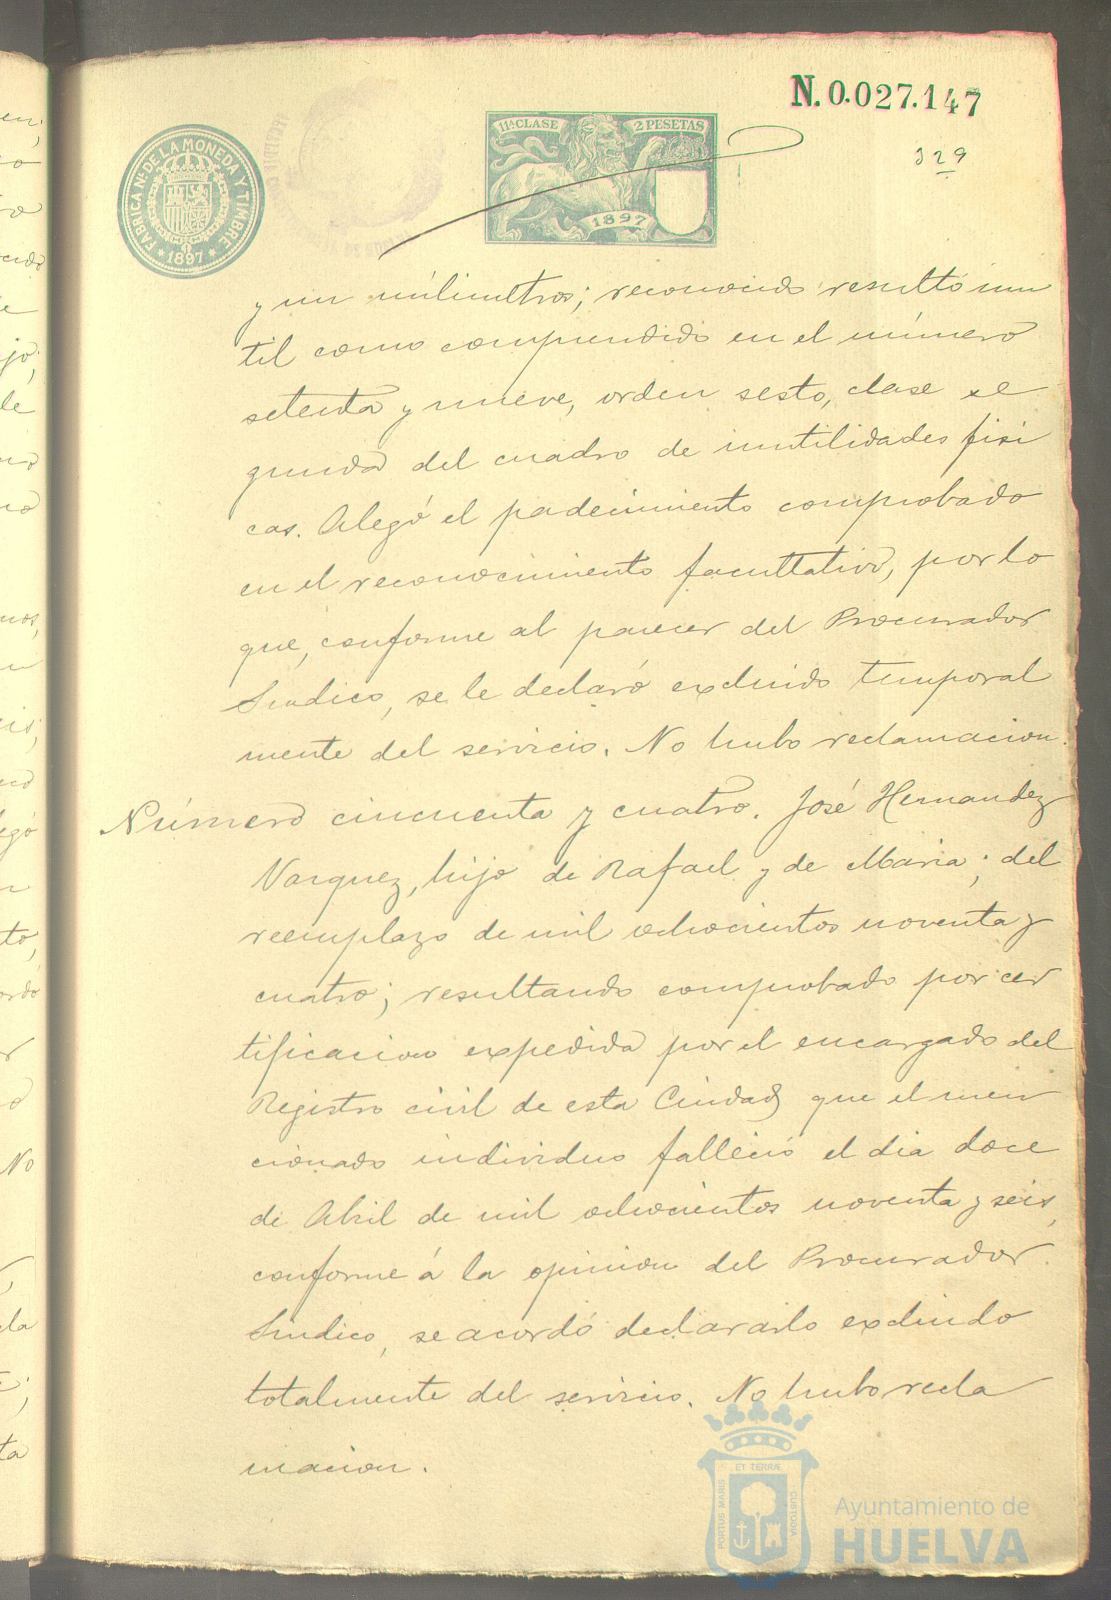 N. 0.027.147
11ª CLASE 2 PESETAS
1897
FABRICA Nˡ. DE LA MONEDA Y TIMBRE
* 1897 *
129
y un milimetros; reconocido resultó inu
til como comprendido en el número
setenta y nueve, orden sesto, clase se
gunda del cuadro de inutilidades fisi
cas. Alegó el padecimiento comprobado
en el reconocimiento facultativo, por lo
que, conforme al parecer del Procurador
Sindico, se le declaró excluido temporal
mente del servicio. No hubo reclamacion.
Número cincuenta y cuatro. José Hernandez
Vazquez, hijo de Rafael y de Maria; del
reemplazo de mil ochocientos noventa y
cuatro; resultando comprobado por cer
tificacion expedida por el encargado del
Registro civil de esta Ciudad que el men
cionado individuo falleció el dia doce
de Abril de mil ochocientos noventa y seis,
conforme á la opinion del Procurador
Sindico, se acordó declararlo excluido
totalmente del servicio. No hubo recla
macion.
PORTUS MARIS ET TERRÆ CUSTODIA
Ayuntamiento de
HUELVA